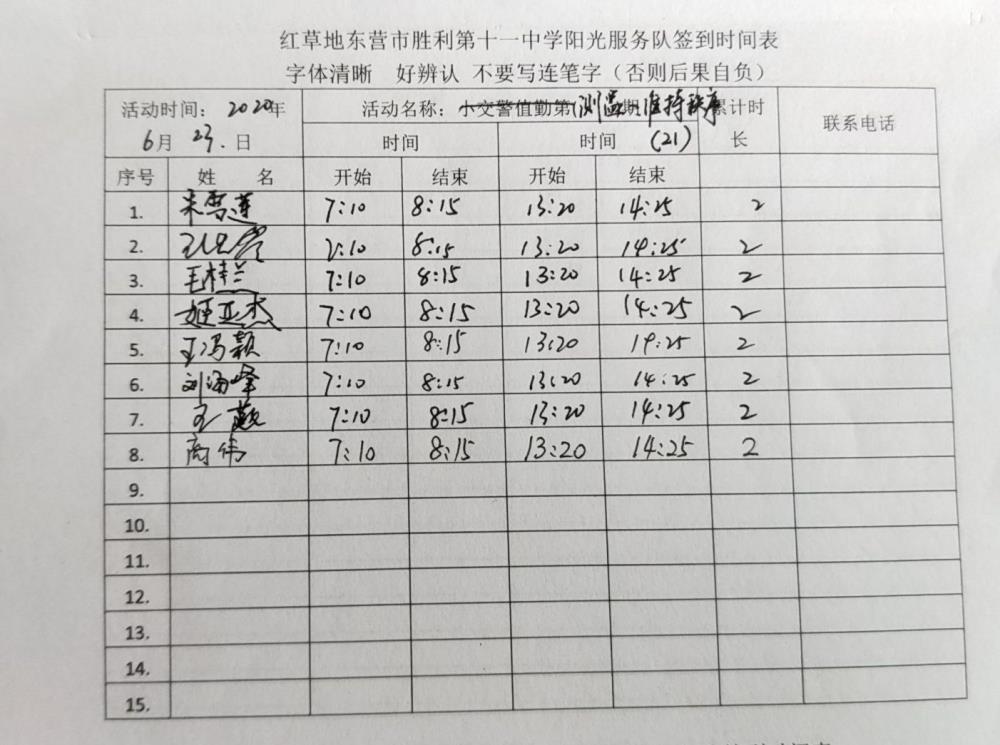 红草地东营市胜利第十一中学阳光服务队签到时间表
字体清晰 好辨认 不要写连笔字（否则后果自负）
活动时间：2020年 活动名称：小交警值勤第(测温期维持秩序 累计时 联系电话
6月 23.日 时间 时间 (21) 长
序号 姓 名 开始 结束 开始 结束
1. 7:10 8:15 13:20 14:25 2
2. 7:10 8:15 13:20 14:25 2
3. 毛桂兰 7:10 8:15 13:20 14:25 2
4. 姬亚杰 7:10 8:15 13:20 14:25 2
5. 王冯颖 7:10 8:15 13:20 14:25 2
6. 刘海峰 7:10 8:15 13:20 14:25 2
7. 王 7:10 8:15 13:20 14:25 2
8. 高伟 7:10 8:15 13:20 14:25 2
9.
10.
11.
12.
13.
14.
15.